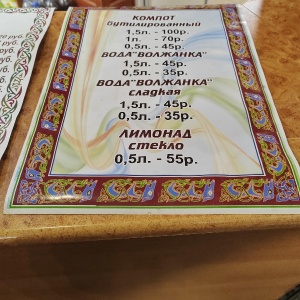 КОМПОТ
бутилированный
1,5л. - 100р.
1л. - 70р.
0,5л. - 45р.
ВОДА"ВОЛЖАНКА"
1,5л. - 45р.
0,5л. - 35р.
ВОДА"ВОЛЖАНКА"
сладкая
1,5л. - 45р.
0,5л. - 35р.
ЛИМОНАД
стекло
0,5л. - 55р.